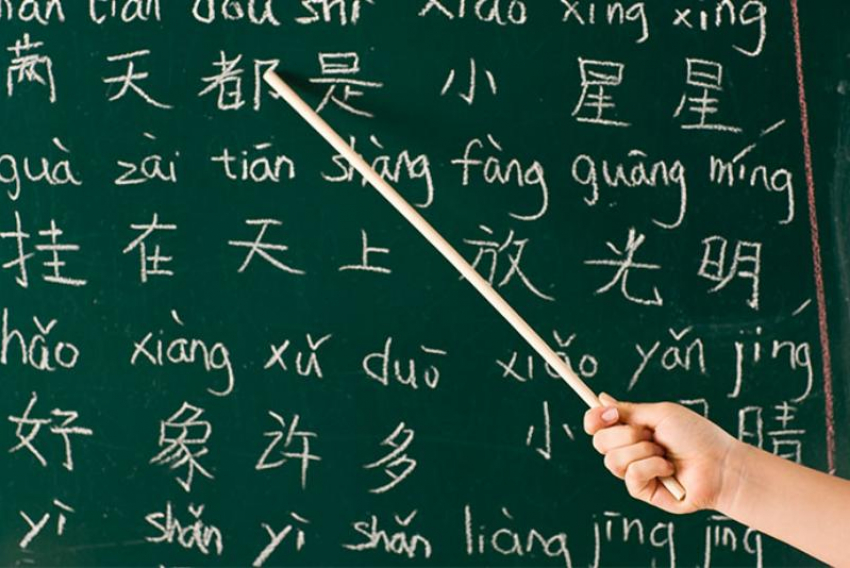 tian dou shi xiao xing xing
满 天 都 是 小 星 星
guà zài tiān shàng fàng guāng míng
挂 在 天 上 放 光 明
hǎo xiàng xǔ duō xiǎo yǎn jíng
好 象 许 多 小 晴
yì shǎn yì shǎn liàng jīng jīng